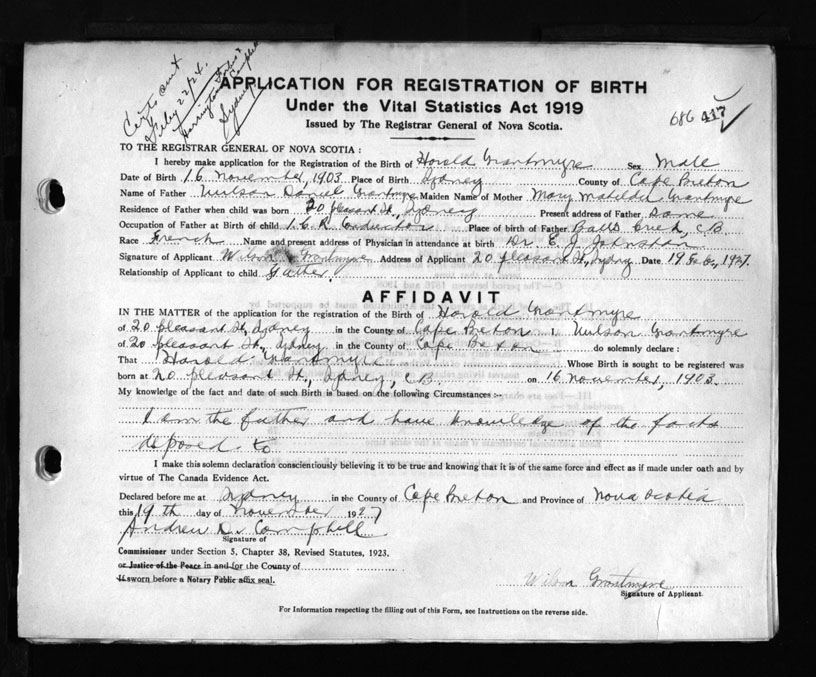 Certs sent
Feby 22/24.
Harrington Forbes &
Campbell
Sydney
APPLICATION FOR REGISTRATION OF BIRTH
Under the Vital Statistics Act 1919
Issued by The Registrar General of Nova Scotia.
686 417
TO THE REGISTRAR GENERAL OF NOVA SCOTIA:
I hereby make application for the Registration of the Birth of Harold Grantmyre Sex Male
Date of Birth 16 November, 1903 Place of Birth Sydney County of Cape Breton
Name of Father Wilson Daniel Grantmyre Maiden Name of Mother Mary Matilda Grantmyre
Residence of Father when child was born 20 pleasant St., Sydney Present address of Father Same
Occupation of Father at Birth of child I.C.R. Conductor Place of birth of Father Balls Creek, C.B.
Race French Name and present address of Physician in attendance at birth Dr. E. J. Johnston
Signature of Applicant Wilson Grantmyre Address of Applicant 20 pleasant St., Sydney Date 19 Feb., 1927.
Relationship of Applicant to child Father.
AFFIDAVIT
IN THE MATTER of the application for the registration of the Birth of Harold Grantmyre
of 20 pleasant St, Sydney in the County of Cape Breton I, Wilson Grantmyre
of 20 pleasant St., Sydney in the County of Cape Breton do solemnly declare:
That Harold Grantmyre Whose Birth is sought to be registered was
born at 20 pleasant St., Sydney, C.B. on 16 November, 1903.
My knowledge of the fact and date of such Birth is based on the following Circumstances :-
I am the father and have knowledge of the facts
deposed to
I make this solemn declaration conscientiously believing it to be true and knowing that it is of the same force and effect as if made under oath and by
virtue of The Canada Evidence Act.
Declared before me at Sydney in the County of Cape Breton and Province of Nova Scotia
this 19th day of November 1927
Andrew D. Campbell
Signature of
Commissioner under Section 5, Chapter 38, Revised Statutes, 1923.
or Justice of the Peace in and for the County of
If sworn before a Notary Public affix seal.
Wilson Grantmyre
Signature of Applicant.
For Information respecting the filling out of this Form, see Instructions on the reverse side.